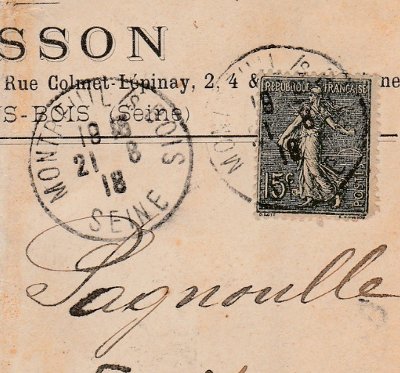 SSON
Rue Colmet-Lépinay, 2, 4 &
S-BOIS (Seine)
MONTREUIL S/S BOIS
18 30
21 - 8
18
SEINE
RÉPUBLIQUE FRANÇAISE
15c
POSTES
Lagnoulle